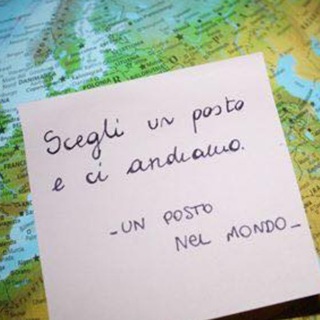 DANIMARCA
POLONIA
Scegli un posto
e ci andiamo.
-UN POSTO
NEL MONDO-